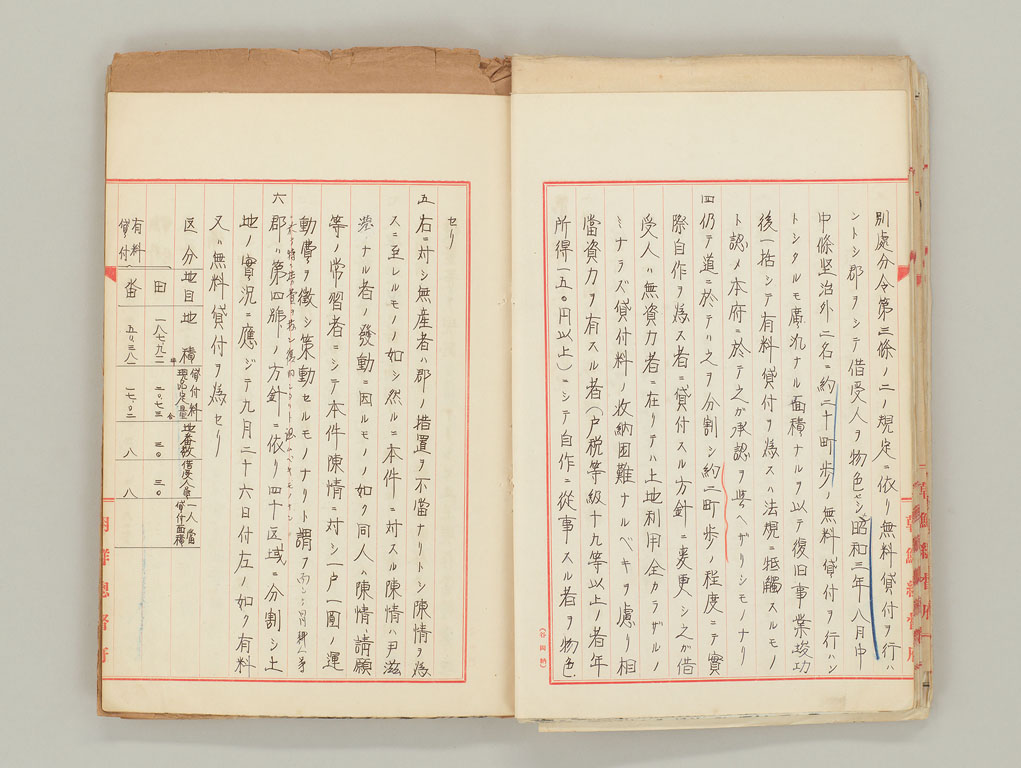 別處分令第三條ノ二ノ規定ニ依リ無料貸付ヲ行ハ
ントシ郡ヲシテ借受人ヲ物色セシメ昭和三年八月中
中條堅治外二名ニ約二十町歩ノ無料貸付ヲ行ハン
トシタルモ廣汎ナル面積ナルヲ以テ復旧事業竣功
後一括シテ有料貸付ヲ爲スハ法規ニ牴觸スルモノ
ト認メ本府ニ於テ之ガ承認ヲ與ヘザリシモノナリ
四 仍テ道ニ於テハ之ヲ分割シ約二町歩ノ程度ニテ實
際自作ヲ爲ス者ニ貸付スル方針ニ変更シ之ガ借
受人ハ無資力者ニ在リテハ土地利用全カラザルノ
ミナラズ貸付料ノ收納困難ナルベキヲ慮リ相
當資力ヲ有スル者(戸税等級十九等以上ノ者年
所得一五〇円以上)ニシテ自作ニ從事スル者ヲ物色
セリ
五 右ニ対シ無産者ハ郡ノ措置ヲ不當ナリトシ陳情ヲ爲
スニ至レルモノノ如シ然ルニ本件ニ対スル陳情ハ尹滋
ナル者ノ發動ニ因ルモノノ如ク同人ハ陳情、請願
等ノ常習者ニシテ本件陳情ニ対シ一戸一圓ノ運
動費ヲ徴シ策動セルモノナリト謂フ
六 郡ハ第四ノ方針ニ依リ四十区域ニ分割シ土
地ノ實況ニ應ジテ九月二十六日付左ノ如ク有料
又ハ無料貸付ヲ爲セリ
区分 地目 地積 貸付料現品定量 地番数 借受人員 一人當貸付面積
有料貸付 田 一八七九二 二〇七三 三〇 三〇
畓 五九三八 一七〇二 八 八
朝鮮總督府